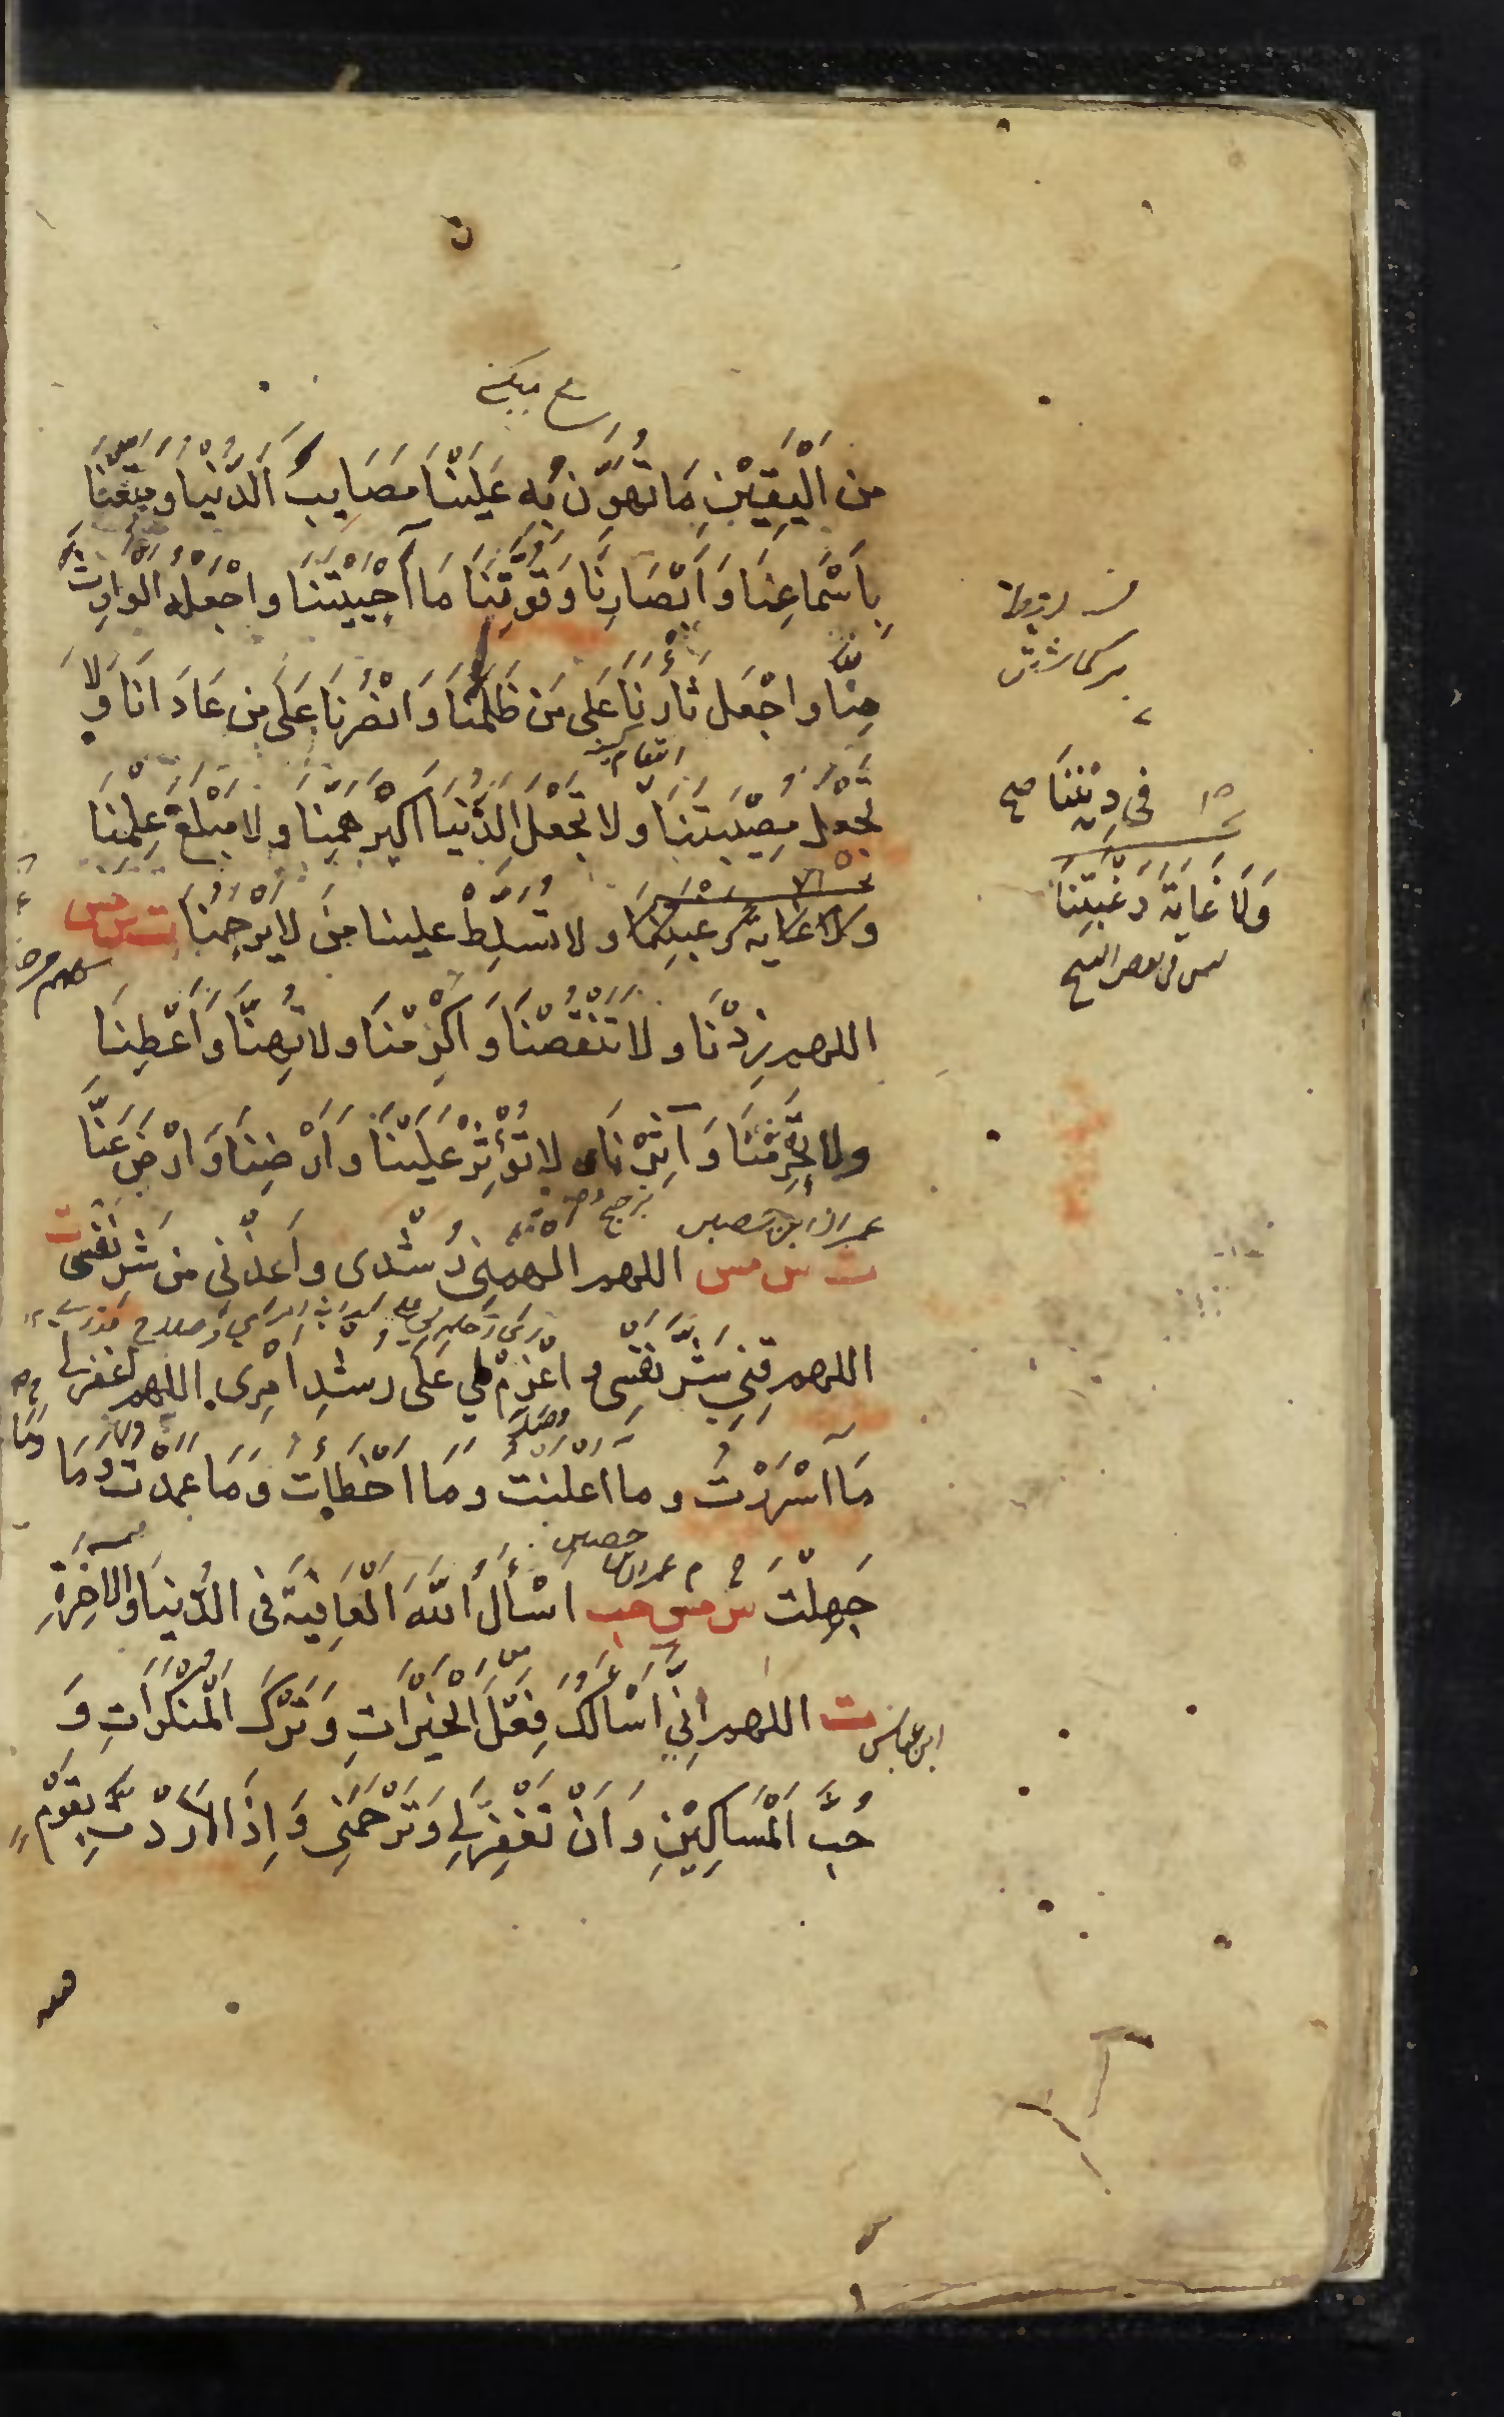 من الْيَقِيْنِ مَا تُهَوِّنُ بِه عَلَيْنَا مَصَايِبَ الدُّنْيَا وَمَتِّعْنَا
بِاَسْمَاعِنَا وَاَبْصَارِنَا وَقُوَّتِنَا مَا اَحْيَيْتَنَا وَاجْعَلْهُ الْوَارِثَ
مِنَّا وَاجْعَل ثَأْرَنَا عَلَى مَن ظَلَمَنَا وَانْصُرْنَا عَلَى مَن عَادَانَا وَلَا
انتقام
تَجْعَل مُصِيْبَتَنَا وَلَا تَجْعَلِ الدُّنْيَا اَكْبَرَ هَمِّنَا وَلَا مَبْلَغَ عِلْمِنَا
فِي دِيْنِنَا صح
وَلَا غَايَةَ رَغْبَتِنَا وَلَا تُسَلِّطْ علينا مَنْ لَا يَرْحَمُنَا ت س مس
وَلَا غَايَةَ رَغْبَتِنَا
اللهم زِدْنَا وَلَا تَنْقُصْنَا وَاَكْرِمْنَا وَلَا تُهِنَّا وَاَعْطِنَا
وَلَا تَحْرِمْنَا وَآثِرْنَا وَلَا تُؤْثِرْ عَلَيْنَا وَاَرْضِنَا وَارْضَ عَنَّا
عمران ابن حصين
ت س مس اللهم اَلْهِمْنِي رُشْدِى وَاَعِذْنِى مِن شَرِّ نَفْسِى ت
اللهم قِنِي شَرَّ نَفْسِى وَاعْزِمْ لِي عَلَى رُشْدِ اَمْرِى اللهم اغْفِرْ لِي
مَا اَسْرَرْتُ وَمَا اَعْلَنْتُ وَمَا اَخْطَأْتُ وَمَا عَمَدْتُ وَمَا
حصين
جَهِلْتُ س مس حب اَسْأَلُ اللهَ الْعَافِيَةَ فِى الدُّنْيَا وَالْآخِرَةِ
ابن عباس ت اللهم اِنِّي اَسْأَلُكَ فِعْلَ الْخَيْرَاتِ وَتَرْكَ الْمُنْكَرَاتِ وَ
حُبَّ الْمَسَاكِيْنِ وَاَنْ تَغْفِرَ لِي وَتَرْحَمَنِي وَاِذَا اَرَدْتَ بِقَوْمٍ